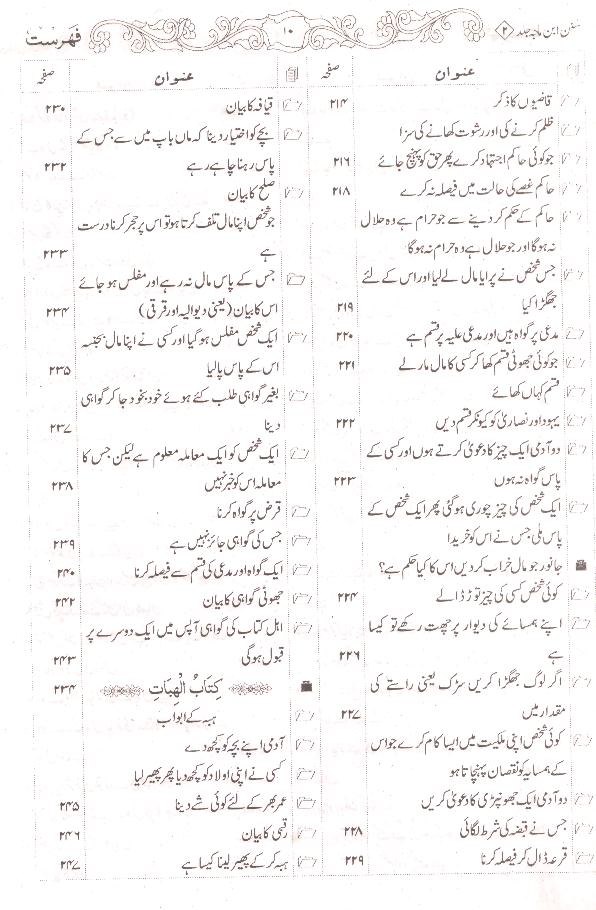 سنن ابن ماجہ جلد ۲
۱۰
فہرست
عنوان
صفحہ
قاضیوں کا ذکر
۲۱۴
ظلم کرنے کی اور رشوت کھانے کی سزا
جو کوئی حاکم اجتہاد کرے پھر حق کو پہنچ جائے
۲۱۶
حاکم غصے کی حالت میں فیصلہ نہ کرے
۲۱۸
حاکم کے حکم کر دینے سے جو حرام ہے وہ حلال
نہ ہوگا اور جو حلال ہے وہ حرام نہ ہوگا
جس شخص نے پرایا مال لے لیا اور اس کے لئے
جھگڑا کیا
۲۱۹
مدعی پر گواہ ہیں اور مدعی علیہ پر قسم ہے
۲۲۰
جو کوئی جھوٹی قسم کھا کر کسی کا مال مار لے
۲۲۱
قسم کہاں کھائے
یہود اور نصاریٰ کو کیونکر قسم دیں
۲۲۲
دو آدمی ایک چیز کا دعویٰ کرتے ہوں اور کسی کے
پاس گواہ نہ ہوں
۲۲۳
ایک شخص کی چیز چوری ہوگئی پھر ایک شخص کے
پاس ملی جس نے اس کو خریدا
جانور جو مال خراب کر دیں اس کا کیا حکم ہے؟
کوئی شخص کسی کی چیز توڑ ڈالے
۲۲۴
اپنے ہمسائے کی دیوار پر چھت رکھے تو کیسا
ہے
۲۲۶
اگر لوگ جھگڑا کریں سڑک یعنی راستے کی
مقدار میں
۲۲۷
کوئی شخص اپنی ملکیت میں ایسا کام کرے جو اس
کے ہمسایہ کو نقصان پہنچاتا ہو
دو آدمی ایک جھونپڑی کا دعویٰ کریں
جس نے قبضہ کی شرط لگائی
۲۲۸
قرعہ ڈال کر فیصلہ کرنا
۲۲۹
عنوان
صفحہ
قیافہ کا بیان
۲۳۰
بچے کو اختیار دینا کہ ماں باپ میں سے جس کے
پاس رہنا چاہے رہے
۲۳۲
صلح کا بیان
جو شخص اپنا مال تلف کرتا ہو تو اس پر حجر کرنا درست
ہے
۲۳۳
جس کے پاس مال نہ رہے اور مفلس ہو جائے
اس کا بیان (یعنی دیوالیہ اور قرقی)
۲۳۴
ایک شخص مفلس ہوگیا اور کسی نے اپنا مال بجنسہ
اس کے پاس پالیا
۲۳۵
بغیر گواہی طلب کئے ہوئے خود بخود جا کر گواہی
دینا
۲۳۷
ایک شخص کو ایک معاملہ معلوم ہے لیکن جس کا
معاملہ اس کو خبر نہیں
۲۳۸
قرض پر گواہ کرنا
جس کی گواہی جائز نہیں ہے
۲۳۹
ایک گواہ اور مدعی کی قسم سے فیصلہ کرنا
۲۴۰
جھوٹی گواہی کا بیان
۲۴۲
اہل کتاب کی گواہی آپس میں ایک دوسرے پر
قبول ہوگی
۲۴۳
كِتَابُ الْهِبَاتِ
۲۳۴
ہبہ کے ابواب
آدمی اپنے بچہ کو کچھ دے
کسی نے اپنی اولاد کو کچھ دیا پھر پھیر لیا
عمر بھر کے لئے کوئی شے دینا
۲۴۵
رقبیٰ کا بیان
۲۴۶
ہبہ کر کے پھیر لینا کیسا ہے
۲۴۷